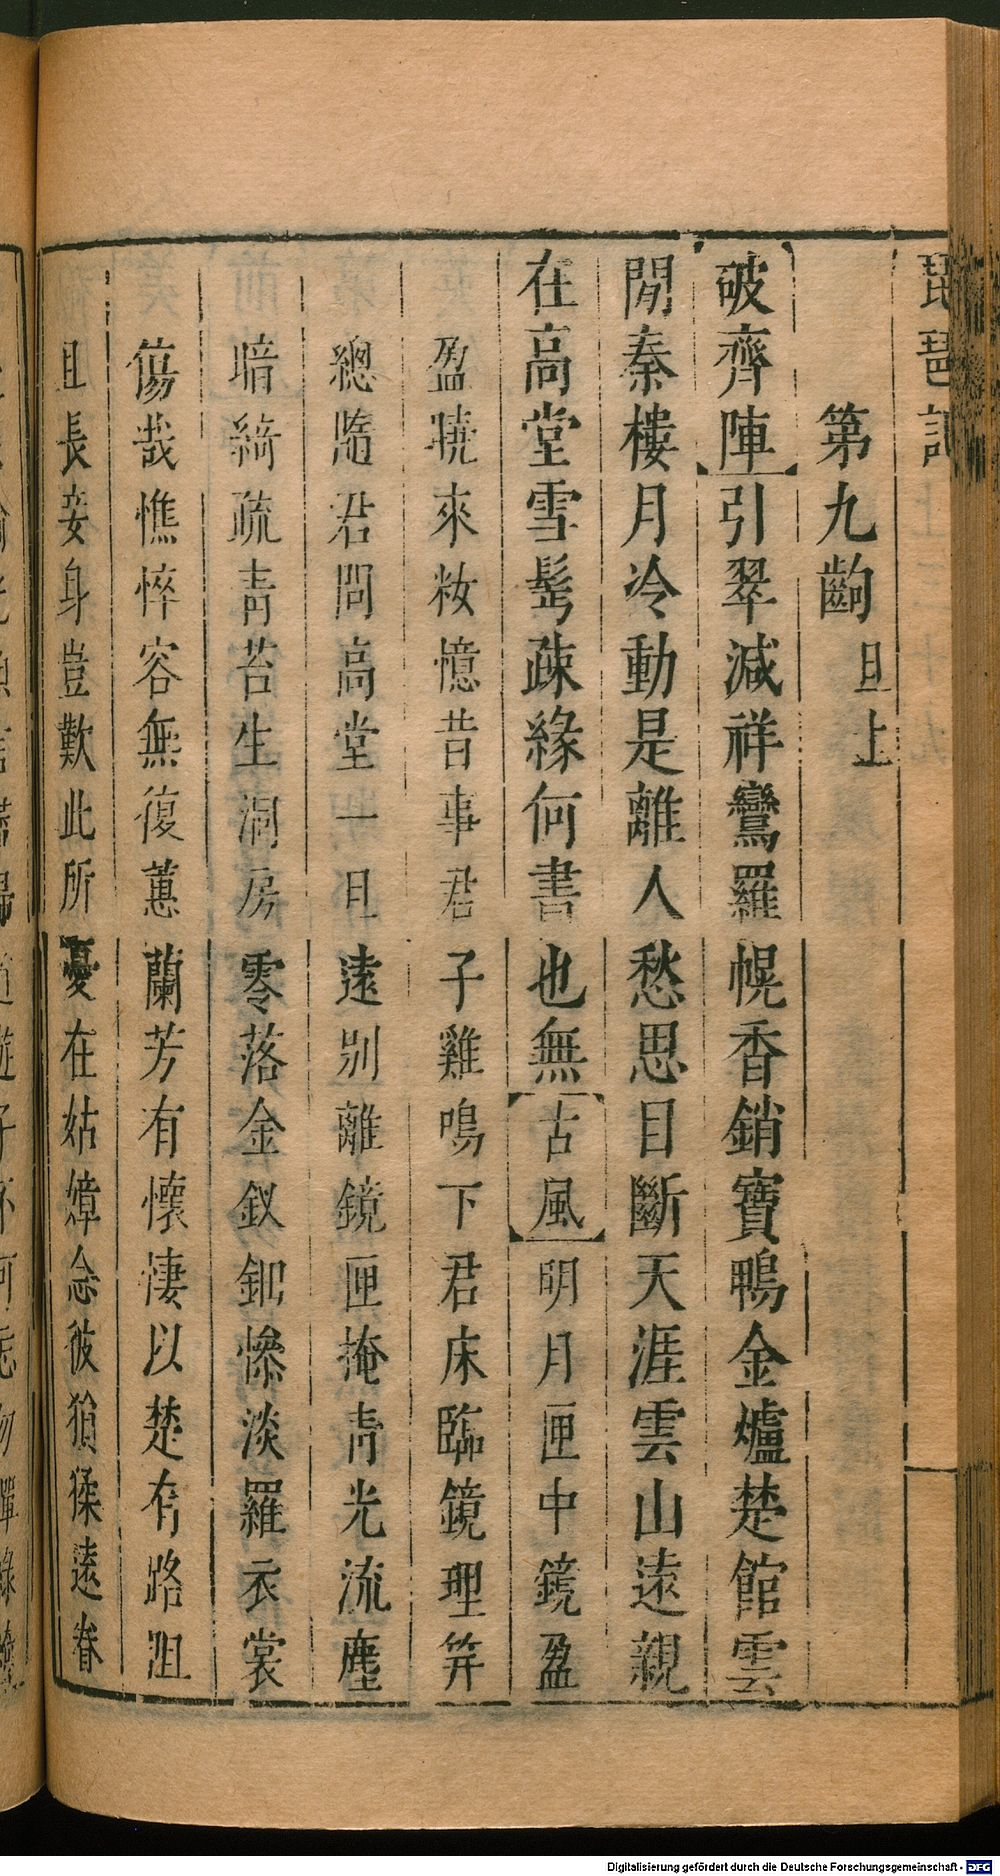 琵琶記
第九齣 旦上
破齊陣引翠減祥鸞羅幌香銷寶鴨金爐楚館雲
閒秦樓月冷動是離人愁思目斷天涯雲山遠親
在高堂雪髩疎緣何書也無古風明月匣中鏡盈
盈曉來籹憶昔事君子雞鳴下君床臨鏡理笄
總隨君問高堂一旦遠別離鏡匣掩青光流塵
暗綺疏青苔生洞房零落金釵鈿慘淡羅衣裳
傷哉憔悴容無復蕙蘭芳有懷悽以楚有路阻
且長妾身豈歎此所憂在姑嫜念彼猿猱遠眷
Digitalisierung gefördert durch die Deutsche Forschungsgemeinschaft - DFG